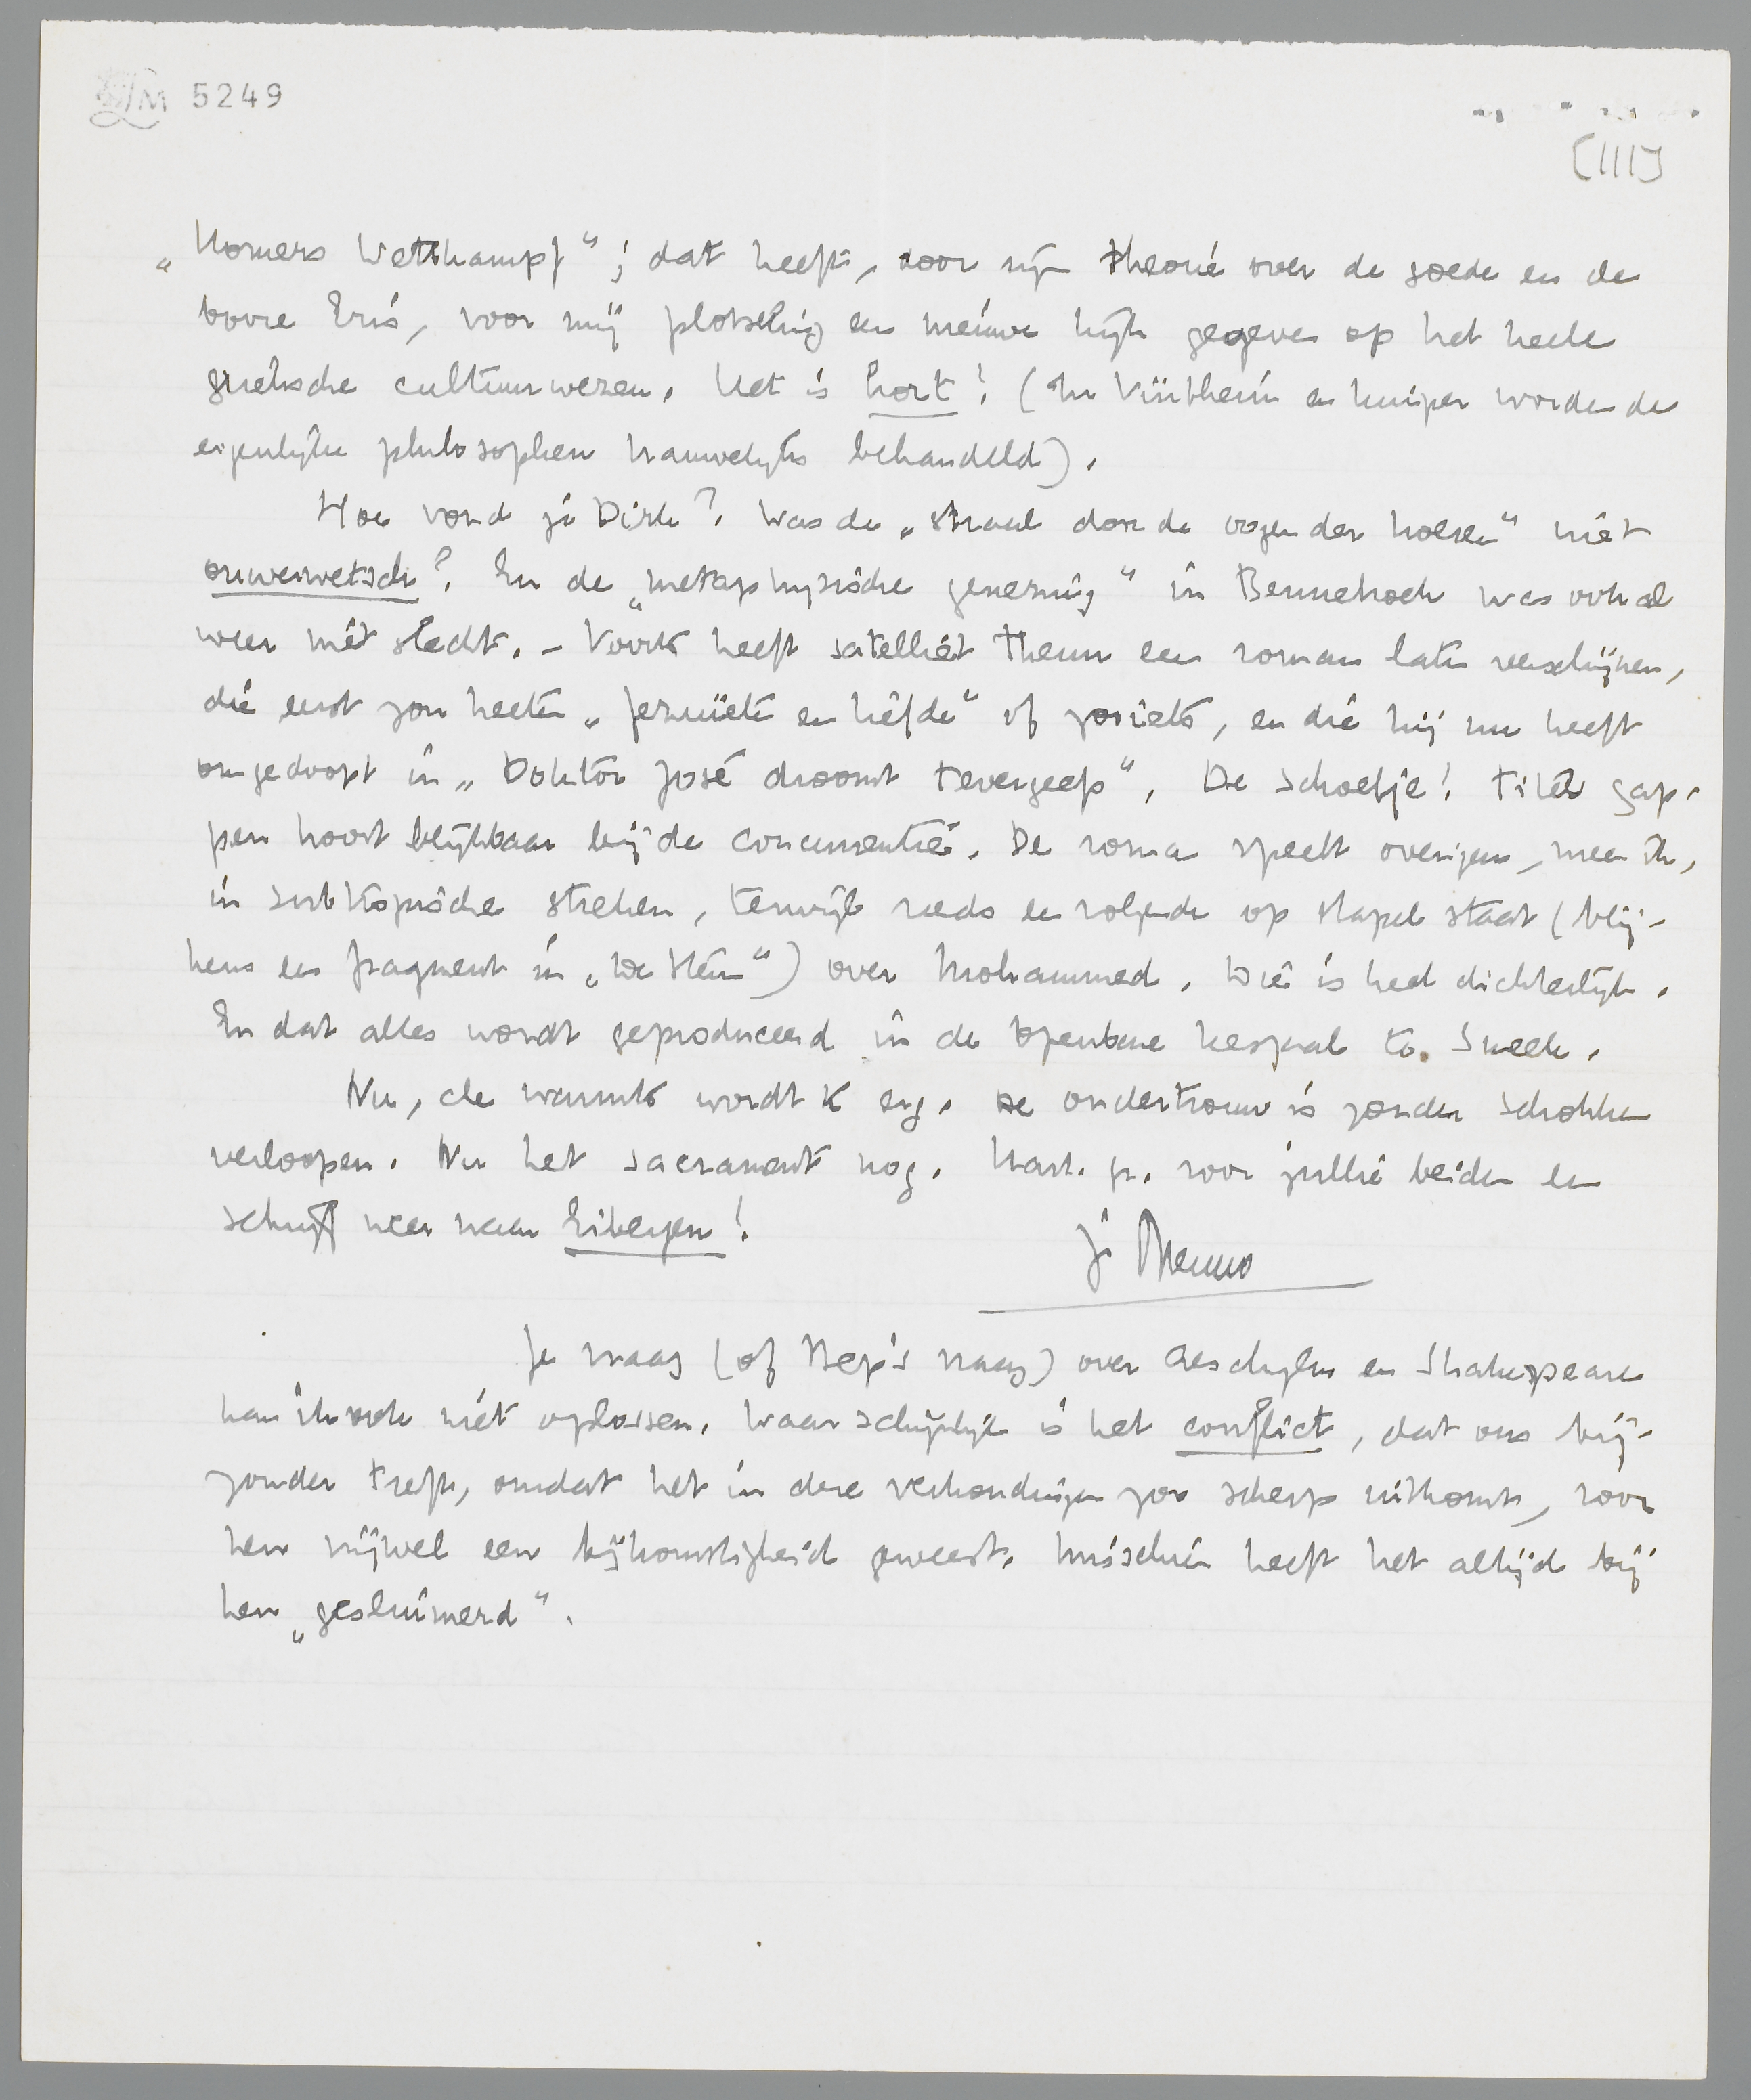 LM 5249
[III]
„Homers Wettkampf“; dat heeft, door zijn theorie over de goede en de
booze Eris, voor mij plotseling een nieuwe kijk gegeven op het heele
grieksche cultuurwezen. Het is kort! (In Vürtheim en Kuiper worden de
eigenlijke philosophen nauwelijks behandeld).
Hoe vond je Dirk? Was de „straal door de oogen der hoeren“ niet
onverwetsch? En de „metaphysische genezing“ in Bennebroek was ook al
weer niet slecht. – Voorts heeft satelliet Theun een roman laten verschijnen,
die eerst zou heeten „Jezuieten en liefde“ of zooiets, en die hij nu heeft
omgedoopt in „Doktor José droomt tevergeefs“. De schoelje! Titels gap-
pen hoort blijkbaar bij de concurrentie. De roman speelt overigens, meen ik,
in subtropische streken, terwijl reeds een volgende op stapel staat (blij-
kens een fragment in „De Stem“) over Mohammed. Die is heel dichterlijk.
En dat alles wordt geproduceerd in de openbare leeszaal te Sneek.
Nu, de warmte wordt te erg. De ondertrouw is zonder schokken
verloopen. Nu het sacrament nog. Hart. gr. voor jullie beiden en
schrijf weer naar Eibergen!
Je Menno
Je vraag (of Bep's vraag) over Aeschylus en Shakespeare
kan ik ook niet oplossen. Waarschijnlijk is het conflict, dat ons bij-
zonder treft, omdat het in deze verhoudingen zoo scherp uitkomt, voor
hen vrijwel een bijkomstigheid geweest. Misschien heeft het altijd bij
hen „gesluimerd“.